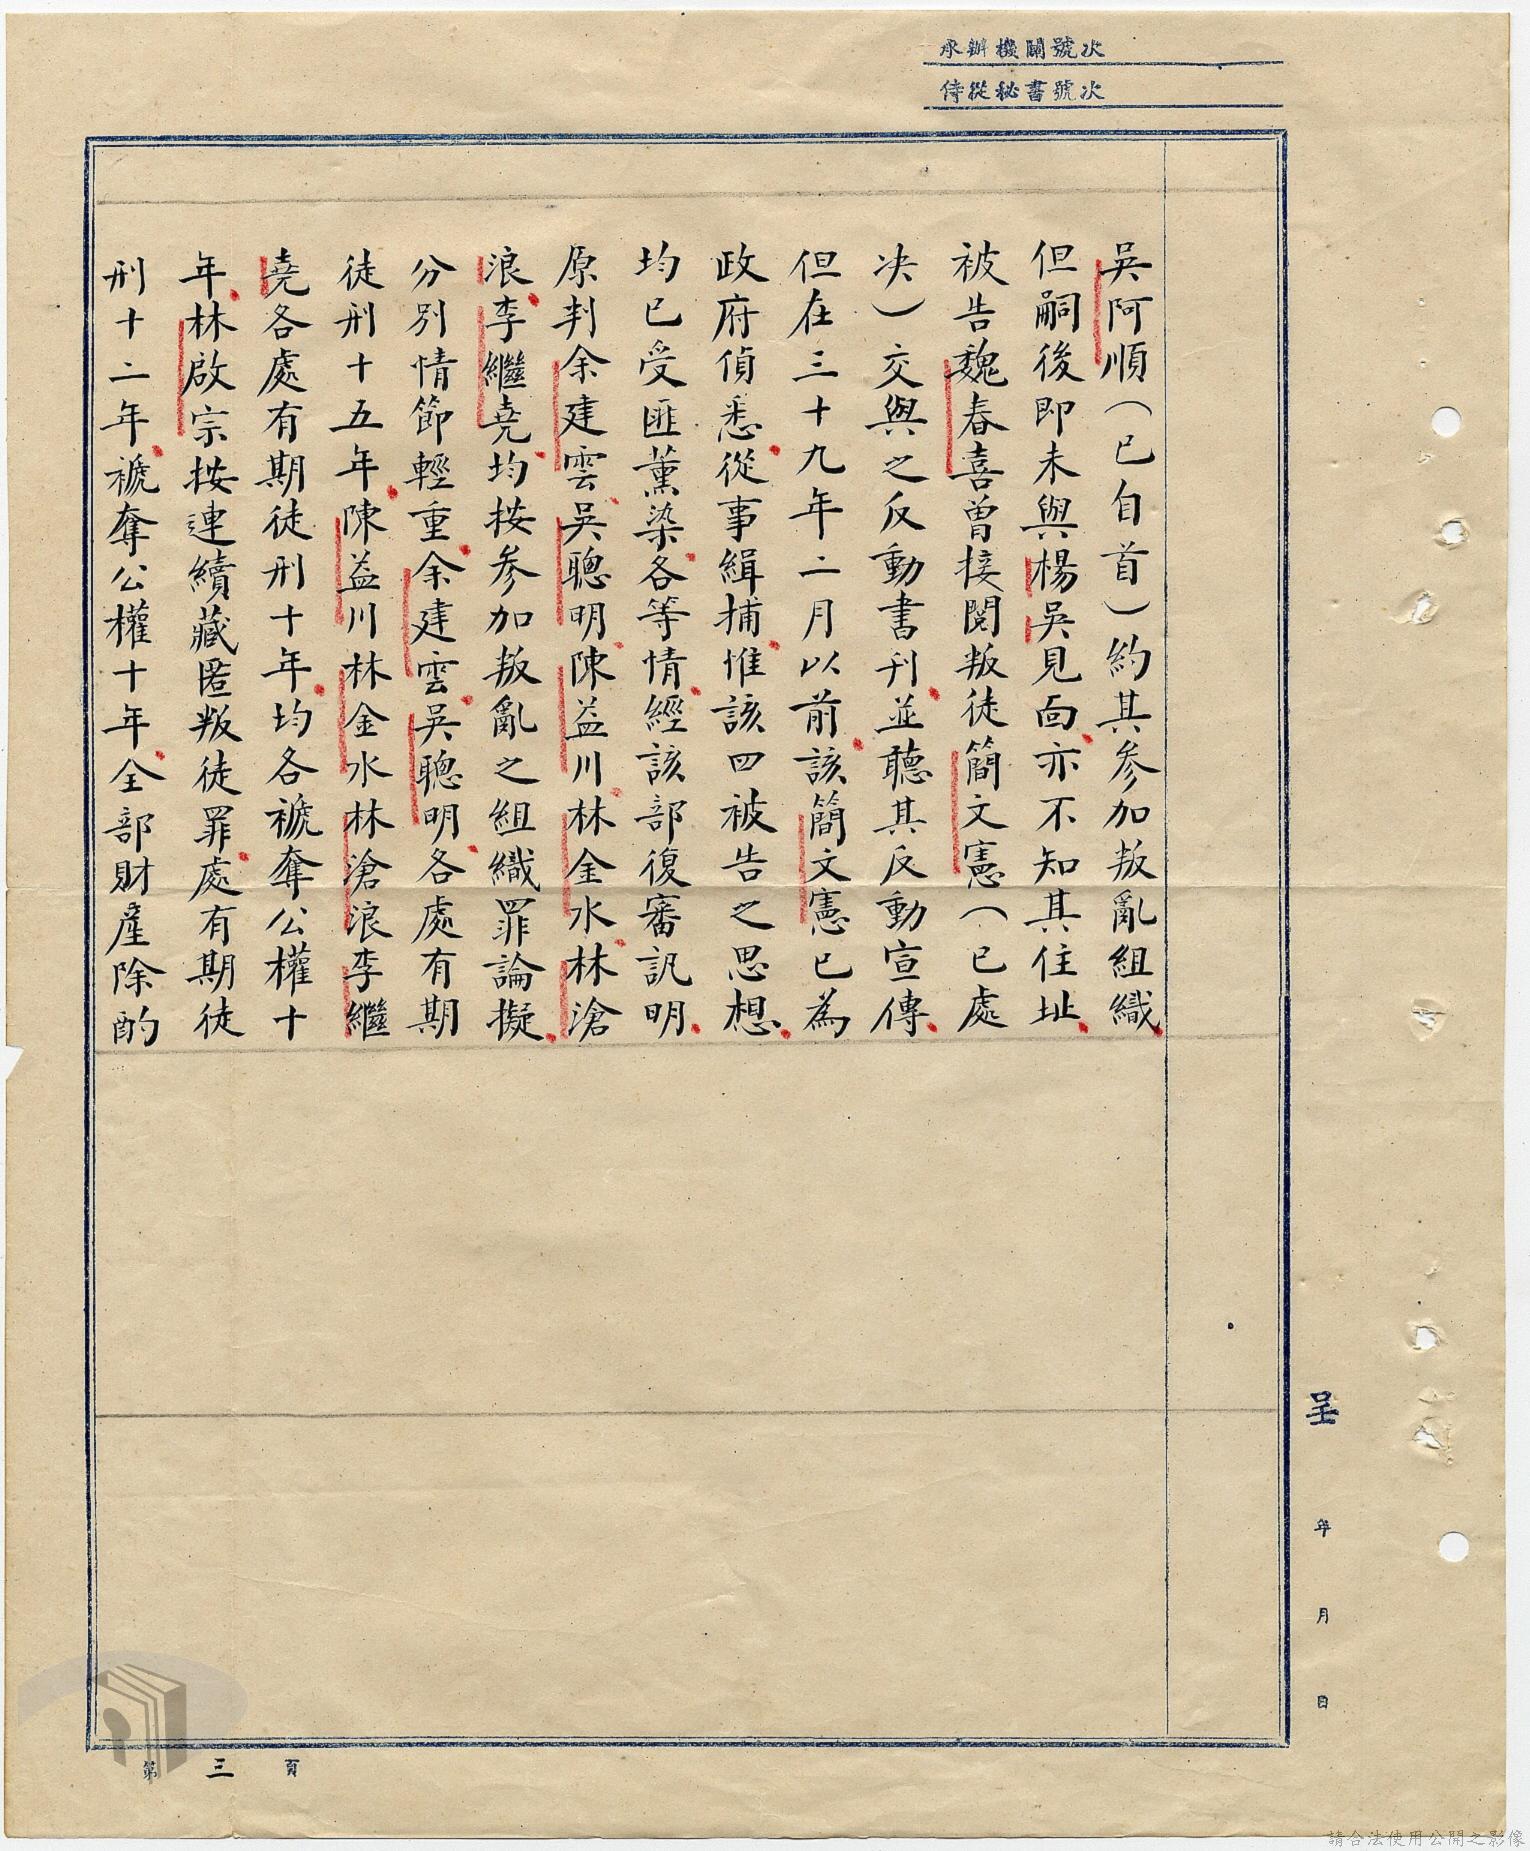 承辦機關號次
侍從秘書號次
吳阿順（已自首）約其參加叛亂組織
但嗣後即未與楊吳見面亦不知其住址
被告魏春喜曾接閱叛徒簡文憲（已處
決）交與之反動書刊並聽其反動宣傳
但在三十九年二月以前該簡文憲已為
政府偵悉從事緝捕惟該四被告之思想
均已受匪薰染各等情經該部復審訊明
原判余建雲吳聰明陳益川林金水林滄
浪李繼堯均按參加叛亂之組織罪論擬
分別情節輕重余建雲吳聰明各處有期
徒刑十五年陳益川林金水林滄浪李繼
堯各處有期徒刑十年均各褫奪公權十
年林啟宗按連續藏匿叛徒罪處有期徒
刑十二年褫奪公權十年全部財產除酌
呈
年
月
日
第三頁
請合法使用公開之影像